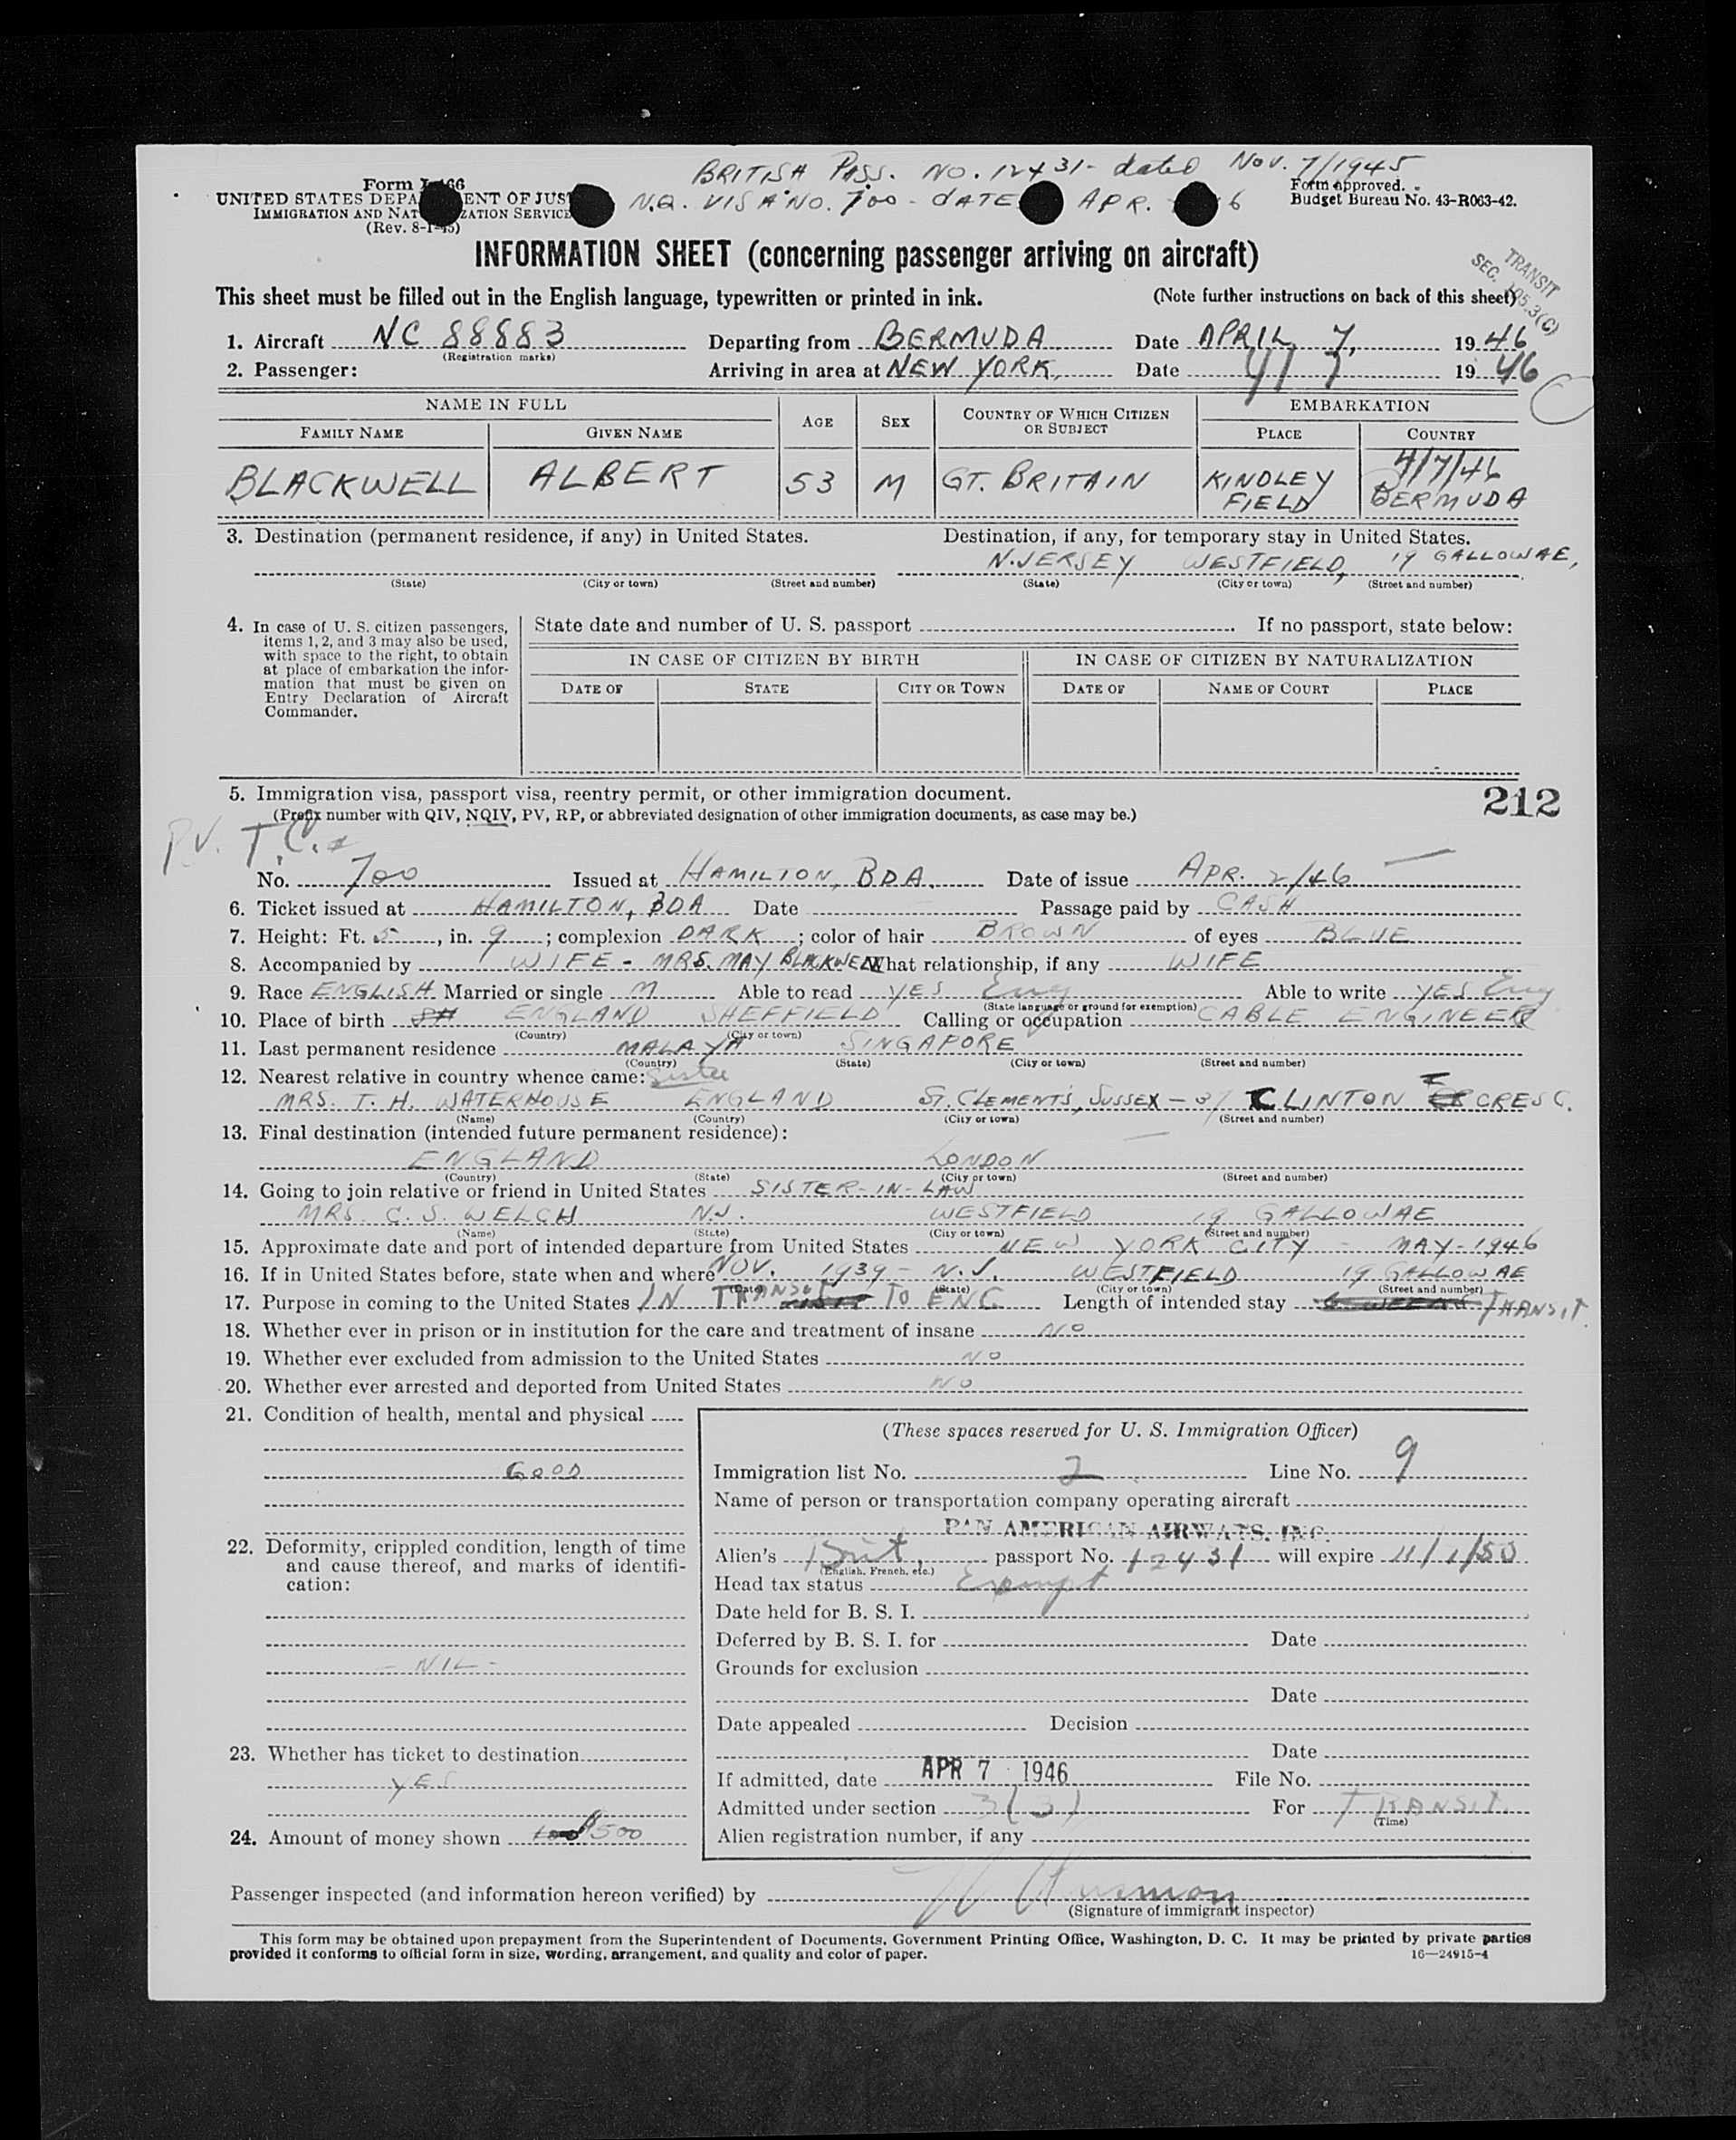 BRITISH PASS. NO. 12431 - dated Nov. 7/1945
Form
UNITED STATES DEPA ENT OF JUS
N.Q. VISA NO. 700 - DATE APR. 6
Form approved.
IMMIGRATION AND NAT ZATION SERVICE
Budget Bureau No. 43-R063-42.
(Rev. 8-1-45)
INFORMATION SHEET (concerning passenger arriving on aircraft)
TRANSIT
SEC. 105.3(C)
This sheet must be filled out in the English language, typewritten or printed in ink. (Note further instructions on back of this sheet)
1. Aircraft NC 88883 Departing from BERMUDA Date APRIL 7, 1946
(Registration marks)
2. Passenger: Arriving in area at NEW YORK, Date 4/7 1946
NAME IN FULL AGE SEX COUNTRY OF WHICH CITIZEN OR SUBJECT EMBARKATION
FAMILY NAME GIVEN NAME PLACE COUNTRY
4/7/46
BLACKWELL ALBERT 53 M GT. BRITAIN KINDLEY FIELD BERMUDA
3. Destination (permanent residence, if any) in United States. Destination, if any, for temporary stay in United States.
N. JERSEY WESTFIELD, 19 GALLOWAE,
(State) (City or town) (Street and number) (State) (City or town) (Street and number)
4. In case of U. S. citizen passengers,
items 1, 2, and 3 may also be used,
with space to the right, to obtain
at place of embarkation the infor-
mation that must be given on
Entry Declaration of Aircraft
Commander.
State date and number of U. S. passport If no passport, state below:
IN CASE OF CITIZEN BY BIRTH IN CASE OF CITIZEN BY NATURALIZATION
DATE OF STATE CITY OR TOWN DATE OF NAME OF COURT PLACE
5. Immigration visa, passport visa, reentry permit, or other immigration document. 212
(Prefix number with QIV, NQIV, PV, RP, or abbreviated designation of other immigration documents, as case may be.)
P.V. T.C.
No. 700 Issued at HAMILTON, BDA. Date of issue APR. 2/46
6. Ticket issued at HAMILTON, BDA Date Passage paid by CASH
7. Height: Ft. 5, in. 9; complexion DARK; color of hair BROWN of eyes BLUE
8. Accompanied by WIFE - MRS. MAY BLACKWELL What relationship, if any WIFE
9. Race ENGLISH Married or single M Able to read YES Eng Able to write YES Eng
(State language or ground for exemption)
10. Place of birth ENGLAND SHEFFIELD Calling or occupation CABLE ENGINEER
(Country) (City or town)
11. Last permanent residence MALAYA SINGAPORE
(Country) (State) (City or town) (Street and number)
12. Nearest relative in country whence came: Sister
MRS. T. H. WATERHOUSE ENGLAND ST. CLEMENTS, SUSSEX - CLINTON CRESC.
(Name) (Country) (City or town) (Street and number)
13. Final destination (intended future permanent residence):
ENGLAND LONDON
(Country) (State) (City or town) (Street and number)
14. Going to join relative or friend in United States SISTER-IN-LAW
MRS. C. S. WELCH N.J. WESTFIELD 19 GALLOWAE
(Name) (State) (City or town) (Street and number)
15. Approximate date and port of intended departure from United States NEW YORK CITY - MAY - 1946
16. If in United States before, state when and where NOV. 1939 - N.J. WESTFIELD 19 GALLOWAE
(Date) (State) (City or town) (Street and number)
17. Purpose in coming to the United States IN TRANSIT TO ENG. Length of intended stay TRANSIT.
18. Whether ever in prison or in institution for the care and treatment of insane NO
19. Whether ever excluded from admission to the United States NO
20. Whether ever arrested and deported from United States NO
21. Condition of health, mental and physical
GOOD
22. Deformity, crippled condition, length of time
and cause thereof, and marks of identifi-
cation:
- NIL -
23. Whether has ticket to destination
YES
24. Amount of money shown $500
(These spaces reserved for U. S. Immigration Officer)
Immigration list No. 2 Line No. 9
Name of person or transportation company operating aircraft
PAN AMERICAN AIRWAYS, INC.
Alien's Brit, passport No. 12431 will expire 11/1/50
(English, French, etc.)
Head tax status Exempt
Date held for B. S. I.
Deferred by B. S. I. for Date
Grounds for exclusion
Date
Date appealed Decision
Date
If admitted, date APR 7 1946 File No.
Admitted under section 3(3) For TRANSIT.
(Time)
Alien registration number, if any
Passenger inspected (and information hereon verified) by
(Signature of immigrant inspector)
This form may be obtained upon prepayment from the Superintendent of Documents, Government Printing Office, Washington, D. C. It may be printed by private parties
provided it conforms to official form in size, wording, arrangement, and quality and color of paper. 16—24915-4